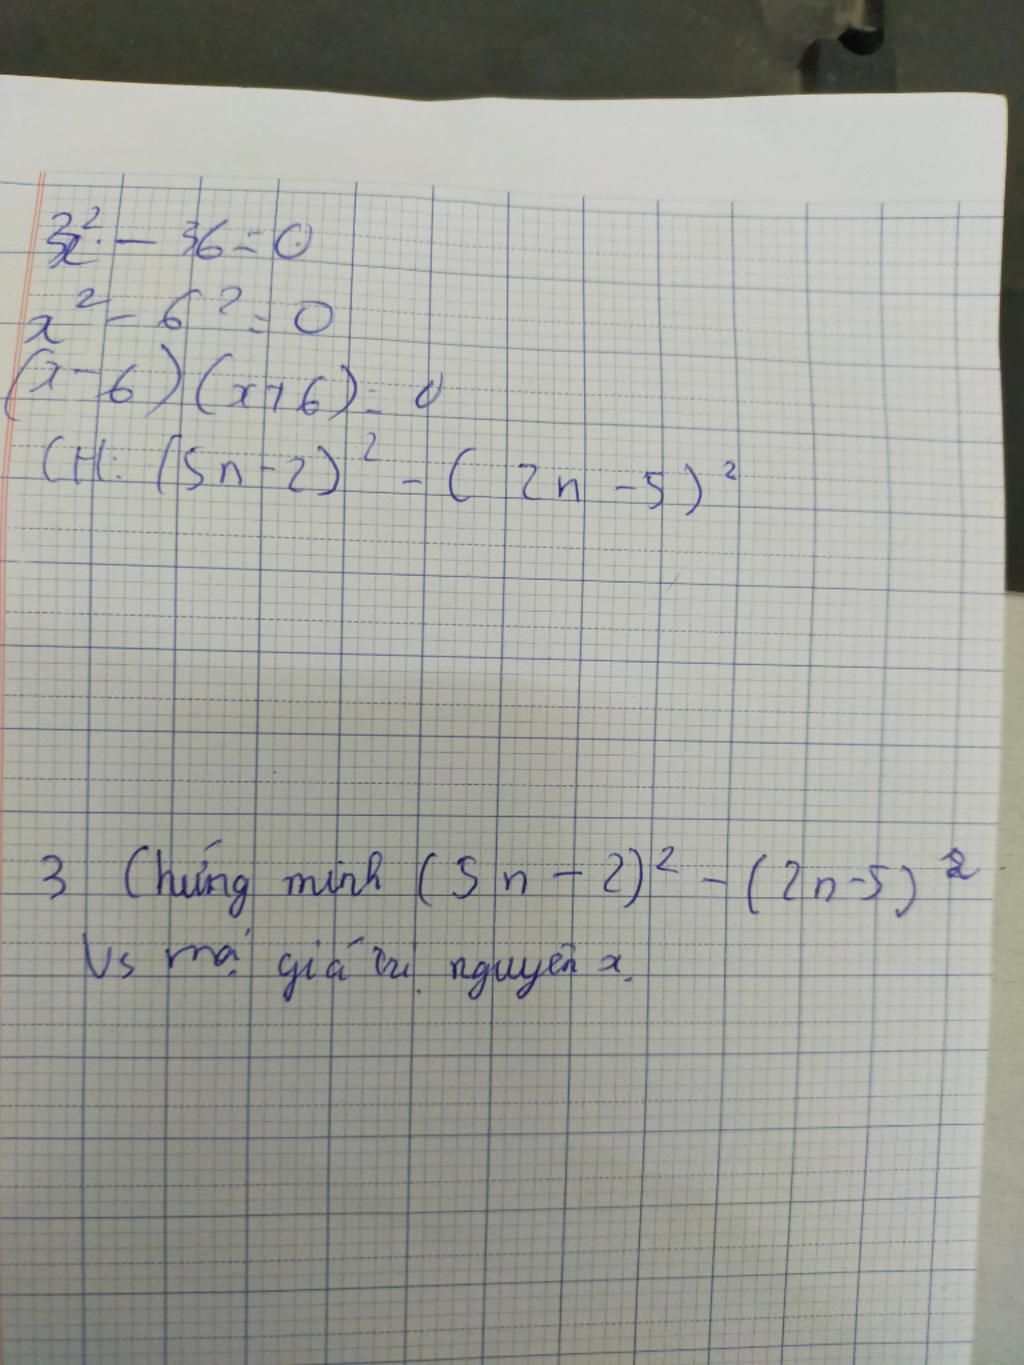 x² - 36 = 0
x² - 6² = 0
(x - 6) (x + 6) = 0
CH: (5n - 2)² - ( 2n - 5)²
3 Chứng minh (5n - 2)² - (2n - 5)²
Vs mọi giá trị nguyên x.